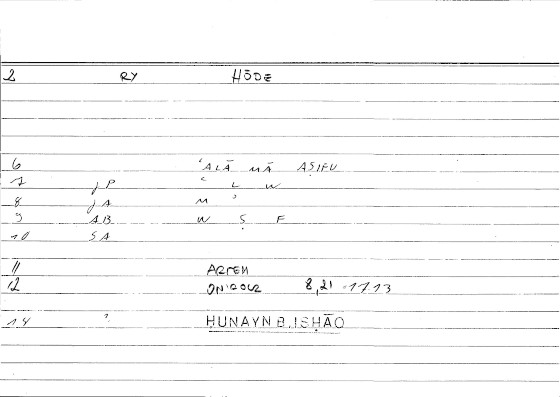 2 RY HŌDE
6 ʿALĀ MĀ AṢIFU
7 jP ʿ L W
8 jA M ʾ
9 AB W Ṣ F
10 SA
11 ARTEM
12 8,21 -17.13
14 ḤUNAYN B. ISḤĀQ